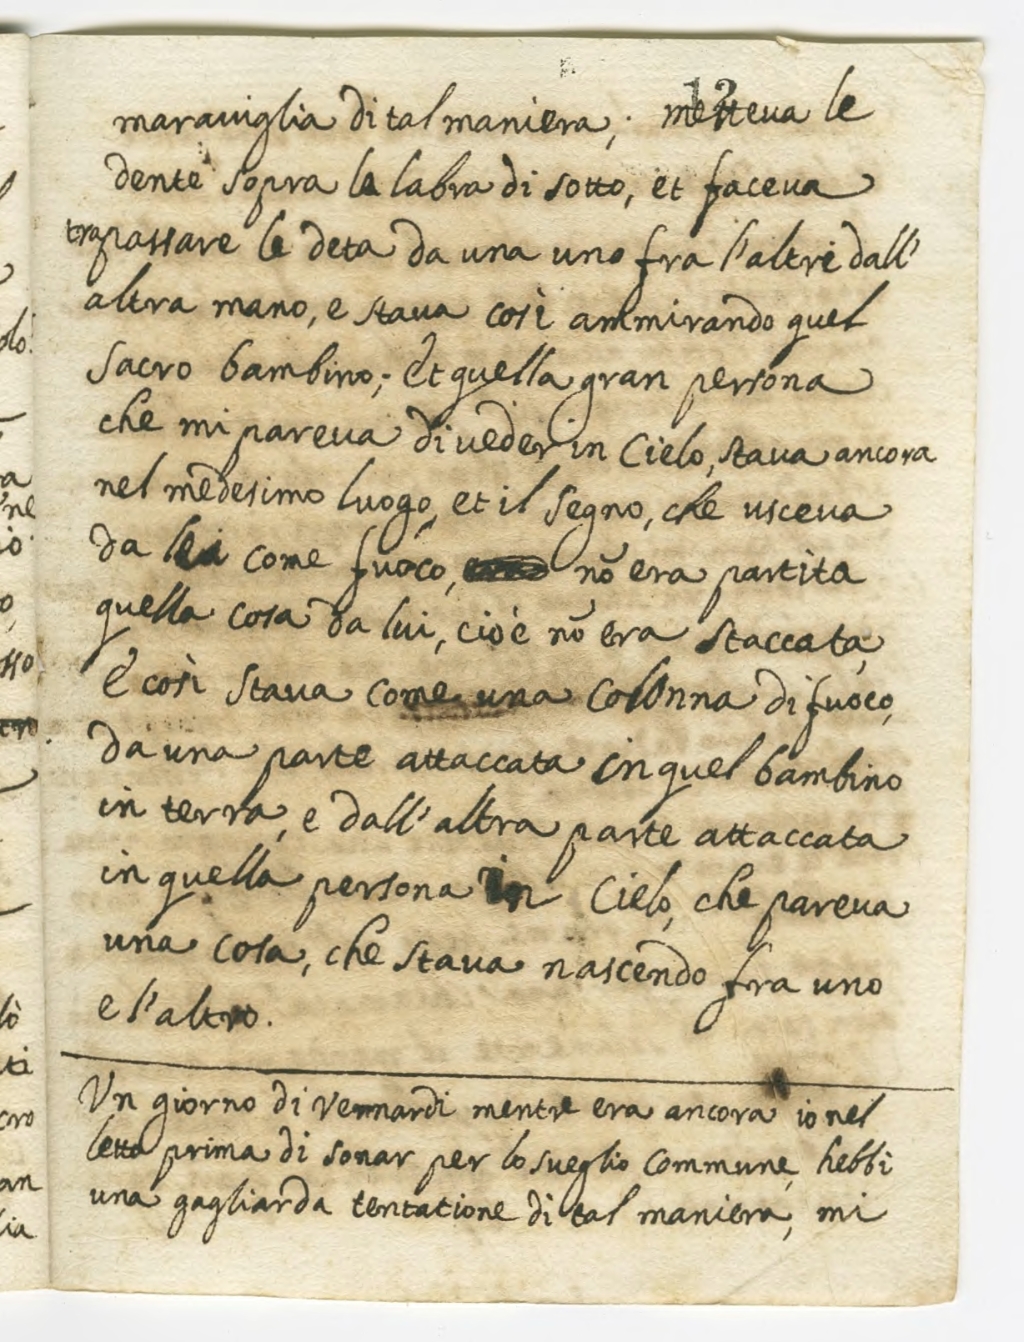 12
marauiglia di tal maniera; metteua le
dente sopra le labra di sotto, et faceua
trapassare le deta da una uno fra l'altre dall'
altra mano, e staua così ammirando quel
sacro bambino; Et quella gran persona
che mi pareua di ueder in Cielo, staua ancora
nel medesimo luogo, et il segno, che usceua
da lei come fuoco, nõ era partita
quella cosa da lui, cioè nõ era staccata,
E così staua come una colonna di fuoco,
da una parte attaccata in quel bambino
in terra, e dall'altra parte attaccata
in quella persona in Cielo, che pareua
una cosa, che staua nascendo fra uno
e l'altro.
Un giorno di Vennardi mentre era ancora io nel
letto prima di sonar per lo sueglio commune, hebbi
una gagliarda tentatione di tal maniera, mi